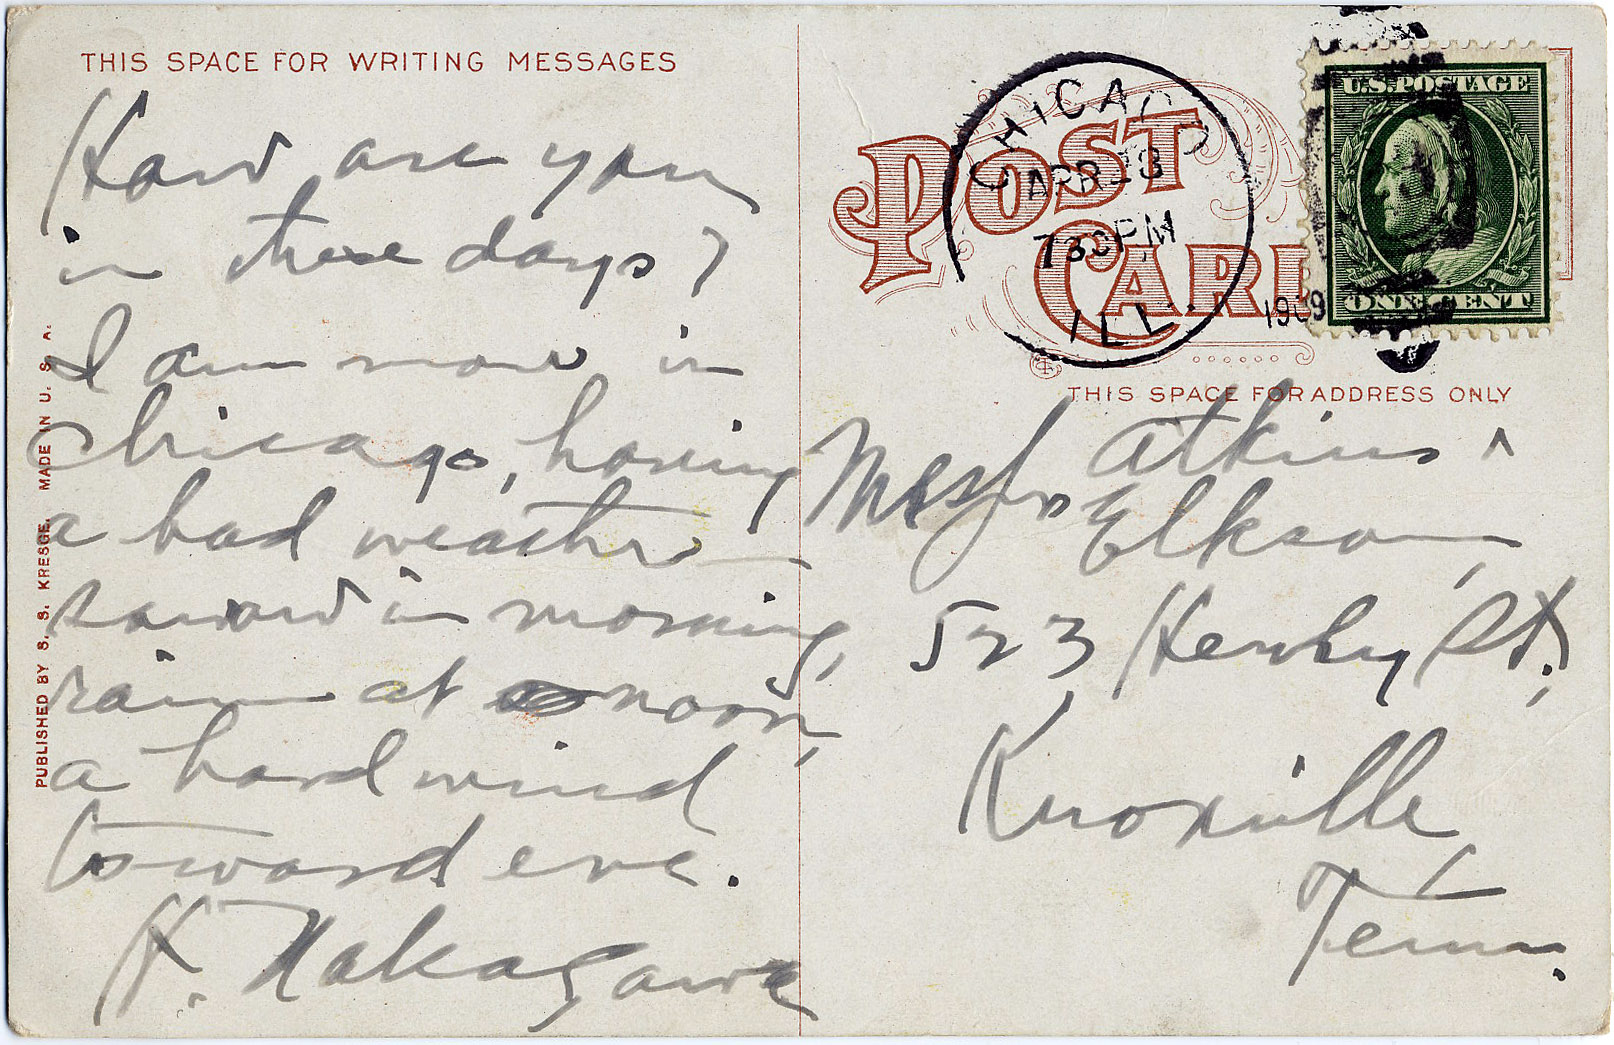 THIS SPACE FOR WRITING MESSAGES
How are you
in these days?
I am now in
Chicago, having
a bad weather —
in morning,
rain at noon,
a hard wind
toward eve.
H. Nakagawa
PUBLISHED BY S. S. KRESGE. MADE IN U. S. A.
POST
CARD
CHICAGO
APR 28
730PM
ILL.
1909
U.S. POSTAGE
ONE CENT
THIS SPACE FOR ADDRESS ONLY
Atkins
523 Henley St.,
Knoxville
Tenn.